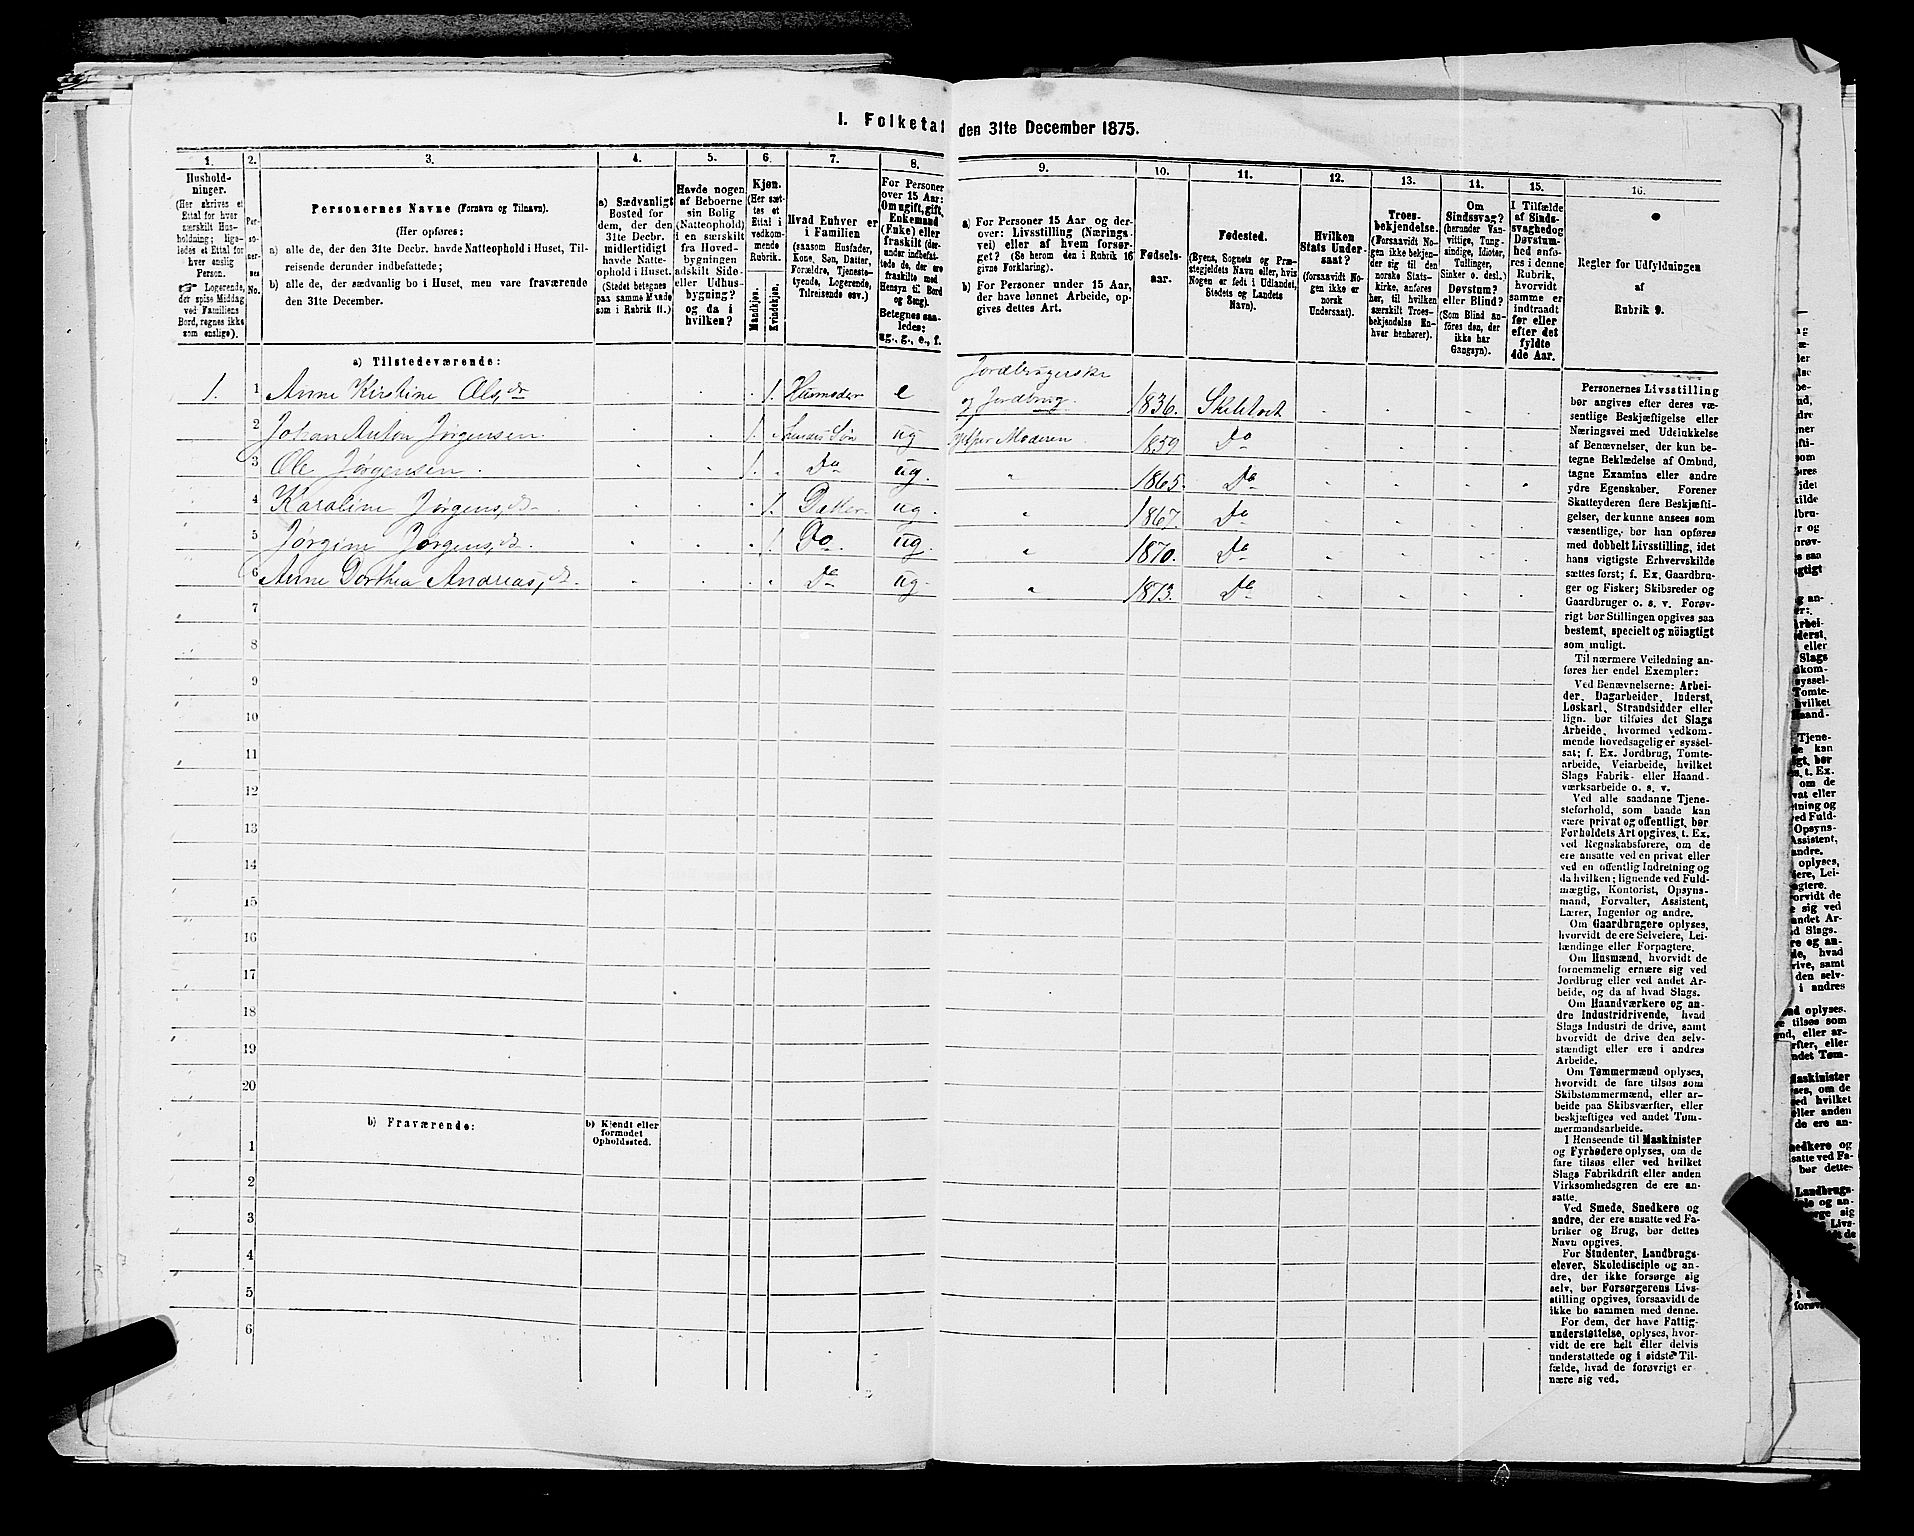 1. Folketal den 31te December 1875.
1. 2. 3. 4. 5. 6. 7. 8. 9. 10. 11. 12. 13. 14. 15. 16.
Hushold-
ninger.
(Her skrives et
Ettal for hver
særskilt Hus-
holdning; lige-
ledes et Ettal for
hver enslig
Person.
Logerende,
der spise Middag
ved Familiens
Bord, regnes ikke
som enslige).
Per-
so-
ner-
nes
No.
Personernes Navne (Fornavn og Tilnavn).
(Her opføres:
a) alle de, der den 31te Decbr. havde Natteophold i Huset, Til-
reisende derunder indbefattede;
b) alle de, der sædvanlig bo i Huset, men vare fraværende
den 31te December.
a) Sædvanligt
Bosted for
dem, der den
31te Decbr.
midlertidigt
havde Natte-
ophold i Huset.
(Stedet betegnes
paa samme Maade
som i Rubrik 11.)
Havde nogen
af Beboerne
sin Bolig
(Natteophold)
i en særskilt
fra Hoved-
bygningen
adskilt Side-
eller Udhus-
bygning?
og da i
hvilken?
Kjøn.
(Her sæt-
tes et
Ettal i
vedkom-
mende
Rubrik.
Mandkjøn.
Kvindekjøn.
Hvad Enhver er
i Familien
(saasom Husfader,
Kone, Søn, Datter,
Forældre, Tjeneste-
tyende, Logerende,
Tilreisende osv.)
For Personer
over 15 Aar:
Om ugift, gift,
Enkemand
(Enke) eller
fraskilt (der-
under indbefat-
tede de, der ere
fraskilte med
Hensyn til Bord
og Seng).
Betegnes saa-
ledes:
ug., g., e., f.
a) For Personer 15 Aar og der-
over: Livsstilling (Nærings-
vei) eller af hvem forsør-
get? (Se herom den i Rubrik 16
givne Forklaring).
b) For Personer under 15 Aar,
der have lønnet Arbeide, op-
gives dettes Art.
Fødsels-
aar.
Fødested.
(Byens, Sognets og Præ-
stegjeldets Navn eller, hvis
Nogen er født i Udlandet,
Stedets og Landets
Navn).
Hvilken
Stats Under-
saat?
(forsaavidt No-
gen ikke er
norsk
Undersaat).
Troes-
bekjendelse.
(Forsaavidt No-
gen ikke bekjen-
der sig til den
norske Stats-
kirke, anføres
her, til hvilken
særskilt Troes-
bekjendelse En-
hver henhører).
Om
Sindssvag?
(herunder Van-
vittige, Tung-
sindige, Idioter,
Tullinger,
Sinker o. desl.)
Døvstum?
eller Blind?
(Som Blind an-
føres den, der
ikke har
Gangsyn).
I Tilfælde
af Sinds-
svaghed og
Døvstum-
hed anfø-
res i denne
Rubrik,
hvorvidt
samme er
indtraadt
før eller
efter det
fyldte
4de Aar.
Regler for Udfyldningen
af
Rubrik 9.
a) Tilstedeværende:
Jordbrugerske
1. 1 Anne Kirstine Olsdr . . . 1. Husmoder e og Jordbrug. 1836. . . . .
2 Johan Anton Jørgensen . . 1. . Søn ug Moderen 1859 Do . . . .
3 Ole Jørgensen . . . 1. . Do ug. " 1865. Do . . . .
4 Karoline Jørgensd. . . . 1. Datter. ug. " 1867. Do . . . .
5 Jørgine Jørgensd. . . . 1. Do. ug. " 1870. Do . . . .
6 Anne Dorthea Andreasd. . . . . Do ug. " 1873. Do . . . .
7
8
9
10
11
12
13
14
15
16
17
18
19
20
b) Fraværende:
b) Kjendt eller
formodet
Opholdssted.
1
2
3
4
5
6
Personernes Livsstilling
bør angives efter deres væ-
sentlige Beskjæftigelse eller
Næringsvei med Udelukkelse
af Benævnelser, der kun be-
tegne Beklædelse af Ombud,
tagne Examina eller andre
ydre Egenskaber. Forener
Skatteyderen flere Beskjæfti-
gelser, der kunne ansees som
væsentlige, bør han opføres
med dobbelt Livsstilling, idet
hans vigtigste Erhvervskilde
sættes først; f. Ex. Gaardbru-
ger og Fisker; Skibsreder og
Gaardbruger o. s. v. Forøv-
rigt bør Stillingen opgives saa
bestemt, specielt og nöiagtigt
som muligt.
Til nærmere Veiledning an-
føres her endel Exempler:
Ved Benævnelserne: Arbei-
der, Dagarbeider, Inderst,
Løskarl, Strandsidder eller
lign. bør tilføies det Slags
Arbeide, hvormed vedkom-
mende hovedsagelig er syssel-
sat; f. Ex. Jordbrug, Tomte-
arbeide, Veiarbeide, hvilket
Slags Fabrik- eller Haand-
værksarbeide o. s. v.
Ved alle saadanne Tjene-
steforhold, som baade kan
være privat og offentligt, bør
Forholdets Art opgives, t. Ex.
ved Regnskabsførere, om de
ere ansatte ved en privat eller
ved en offentlig Indretning og
da hvilken; lignende ved Fuld-
mægtig, Kontorist, Opsyns-
mand, Forvalter, Assistent,
Lærer, Ingeniør og andre.
Om Gaardbrugere oplyses,
hvorvidt de ere Selveiere, Lei-
lændinge eller Forpagtere.
Om Husmænd, hvorvidt de
fornemmelig ernære sig ved
Jordbrug eller ved andet Ar-
beide, og da af hvad Slags.
Om Haandværkere og an-
dre Industridrivende, hvad
Slags Industri de drive, samt
hvorvidt de drive den selv-
stændigt eller ere i andres
Arbeide.
Om Tømmermænd oplyses,
hvorvidt de fare tilsøs som
Skibstømmermænd, eller ar-
beide paa Skibsværfter, eller
beskjæftiges ved andet Tøm-
mermandsarbeide.
I Henseende til Maskinister
og Fyrbødere oplyses, om de
fare tilsøs eller ved hvilket
Slags Fabrikdrift eller anden
Virksomhedsgren de ere an-
satte.
Ved Smede, Snedkere og
andre, der ere ansatte ved Fa-
briker og Brug, bør dettes
Navn opgives.
For Studenter, Landbrugs-
elever, Skoledisciple og an-
dre, der ikke forsørge sig
selv, bør Forsørgerens Livs-
stilling opgives, forsaavidt de
ikke bo sammen med denne.
For dem, der have Fattig-
understøttelse, oplyses, hvor-
vidt de ere helt eller delvis
understøttede og i sidste Til-
fælde, hvad de forøvrigt er-
nære sig ved.